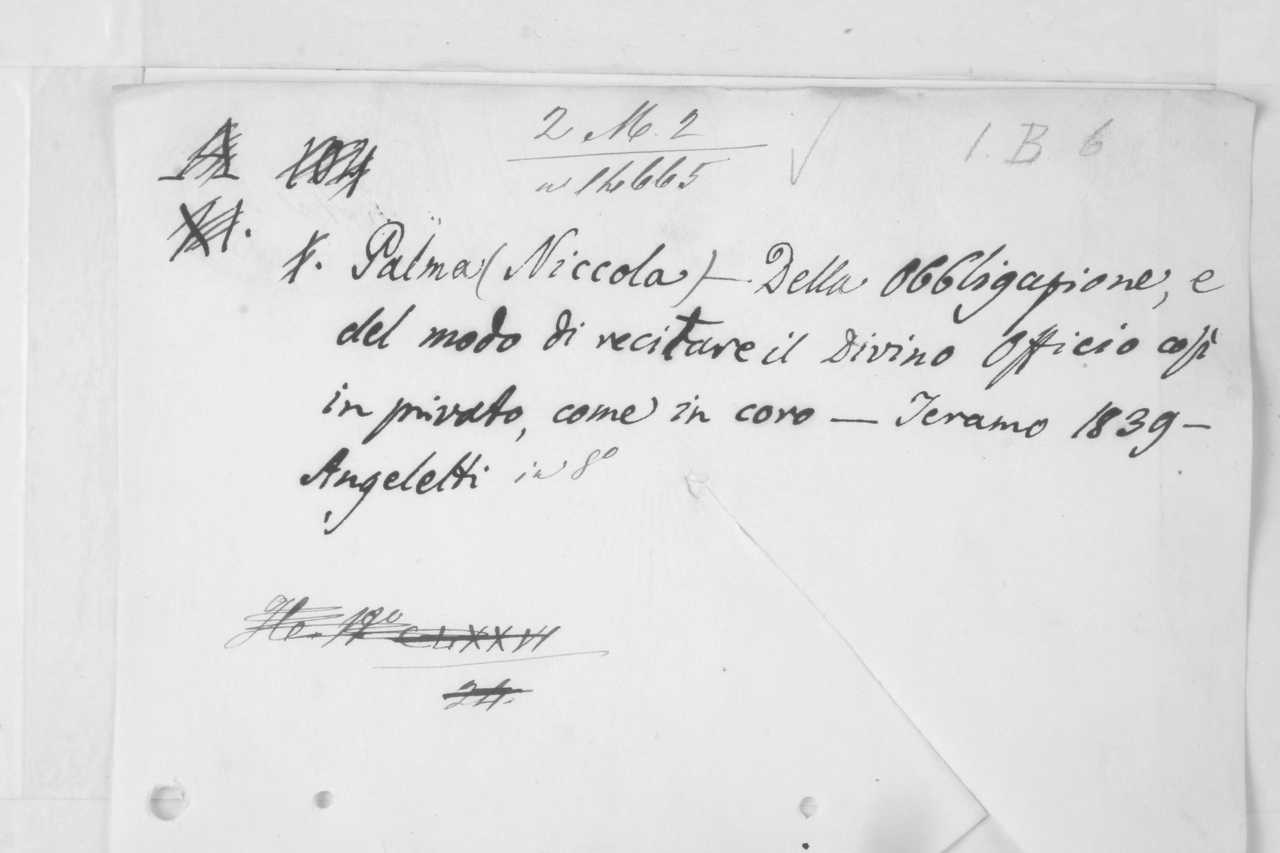 2 M. 2
1. B. 6
n 14665
Palma (Niccola) — Della Obbligazione, e
del modo di recitare il Divino Officio così
in privato, come in coro — Teramo 1839 —
Angeletti in 8º
CLXXVI
24.